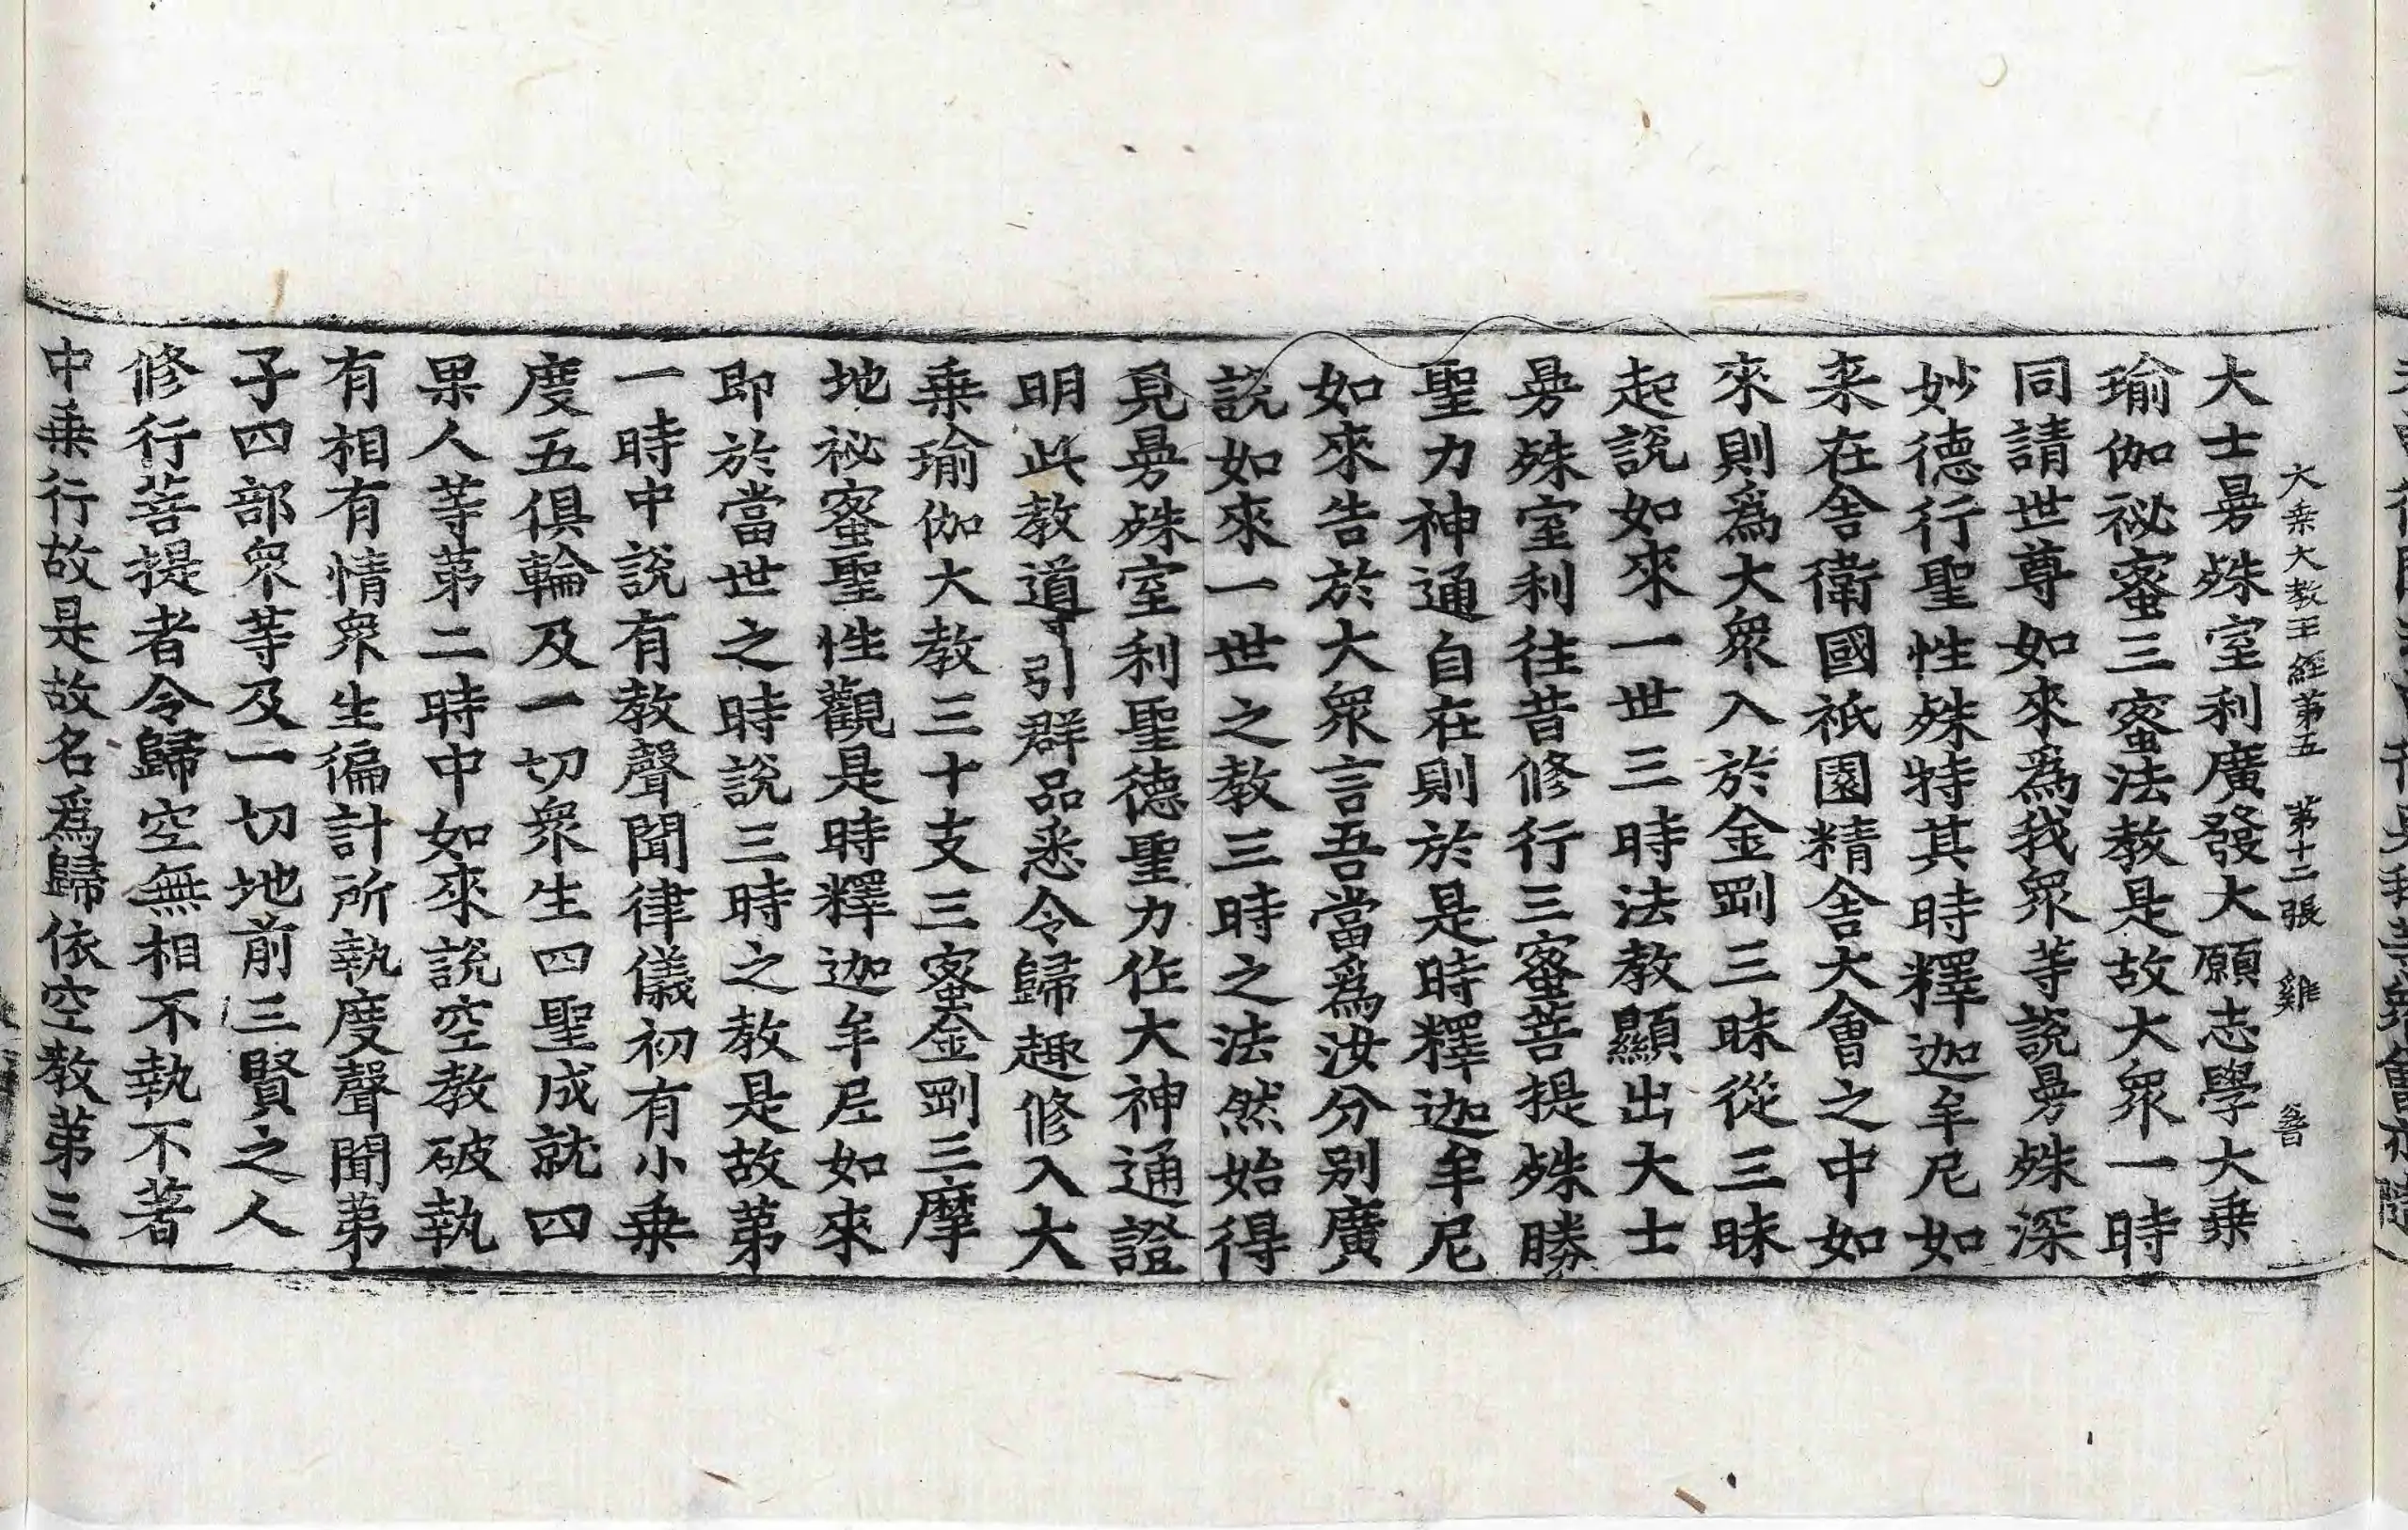 大乗大教王經第五　第十二張　雞
大士曼殊室利廣發大願志學大乗
瑜伽祕蜜三蜜法教是故大衆一時
同請世尊如來爲我衆等説曼殊深
妙德行聖性殊特其時釋迦牟尼如
来在舎衛國祇園精舎大會之中如
來則爲大衆入於金剛三昧從三昧
起説如來一世三時法教顯出大士
曼殊室利往昔修行三蜜菩提殊勝
聖力神通自在則於是時釋迦牟尼
如來告於大衆言吾當爲汝分别廣
説如來一世之教三時之法然始得
見曼殊室利聖德聖力作大神通證
明此教導引群品悉令歸趣修入大
乗瑜伽大教三十支三蜜金剛三摩
地祕蜜聖性觀是時釋迦牟尼如來
即於當世之時説三時之教是故第
一時中説有教聲聞律儀初有小乗
度五俱輪及一切衆生四聖成就四
果人等第二時中如來説空教破執
有相有情衆生徧計所執度聲聞弟
子四部衆等及一切地前三賢之人
修行菩提者令歸空無相不執不著
中乗行故是故名爲歸依空教第三